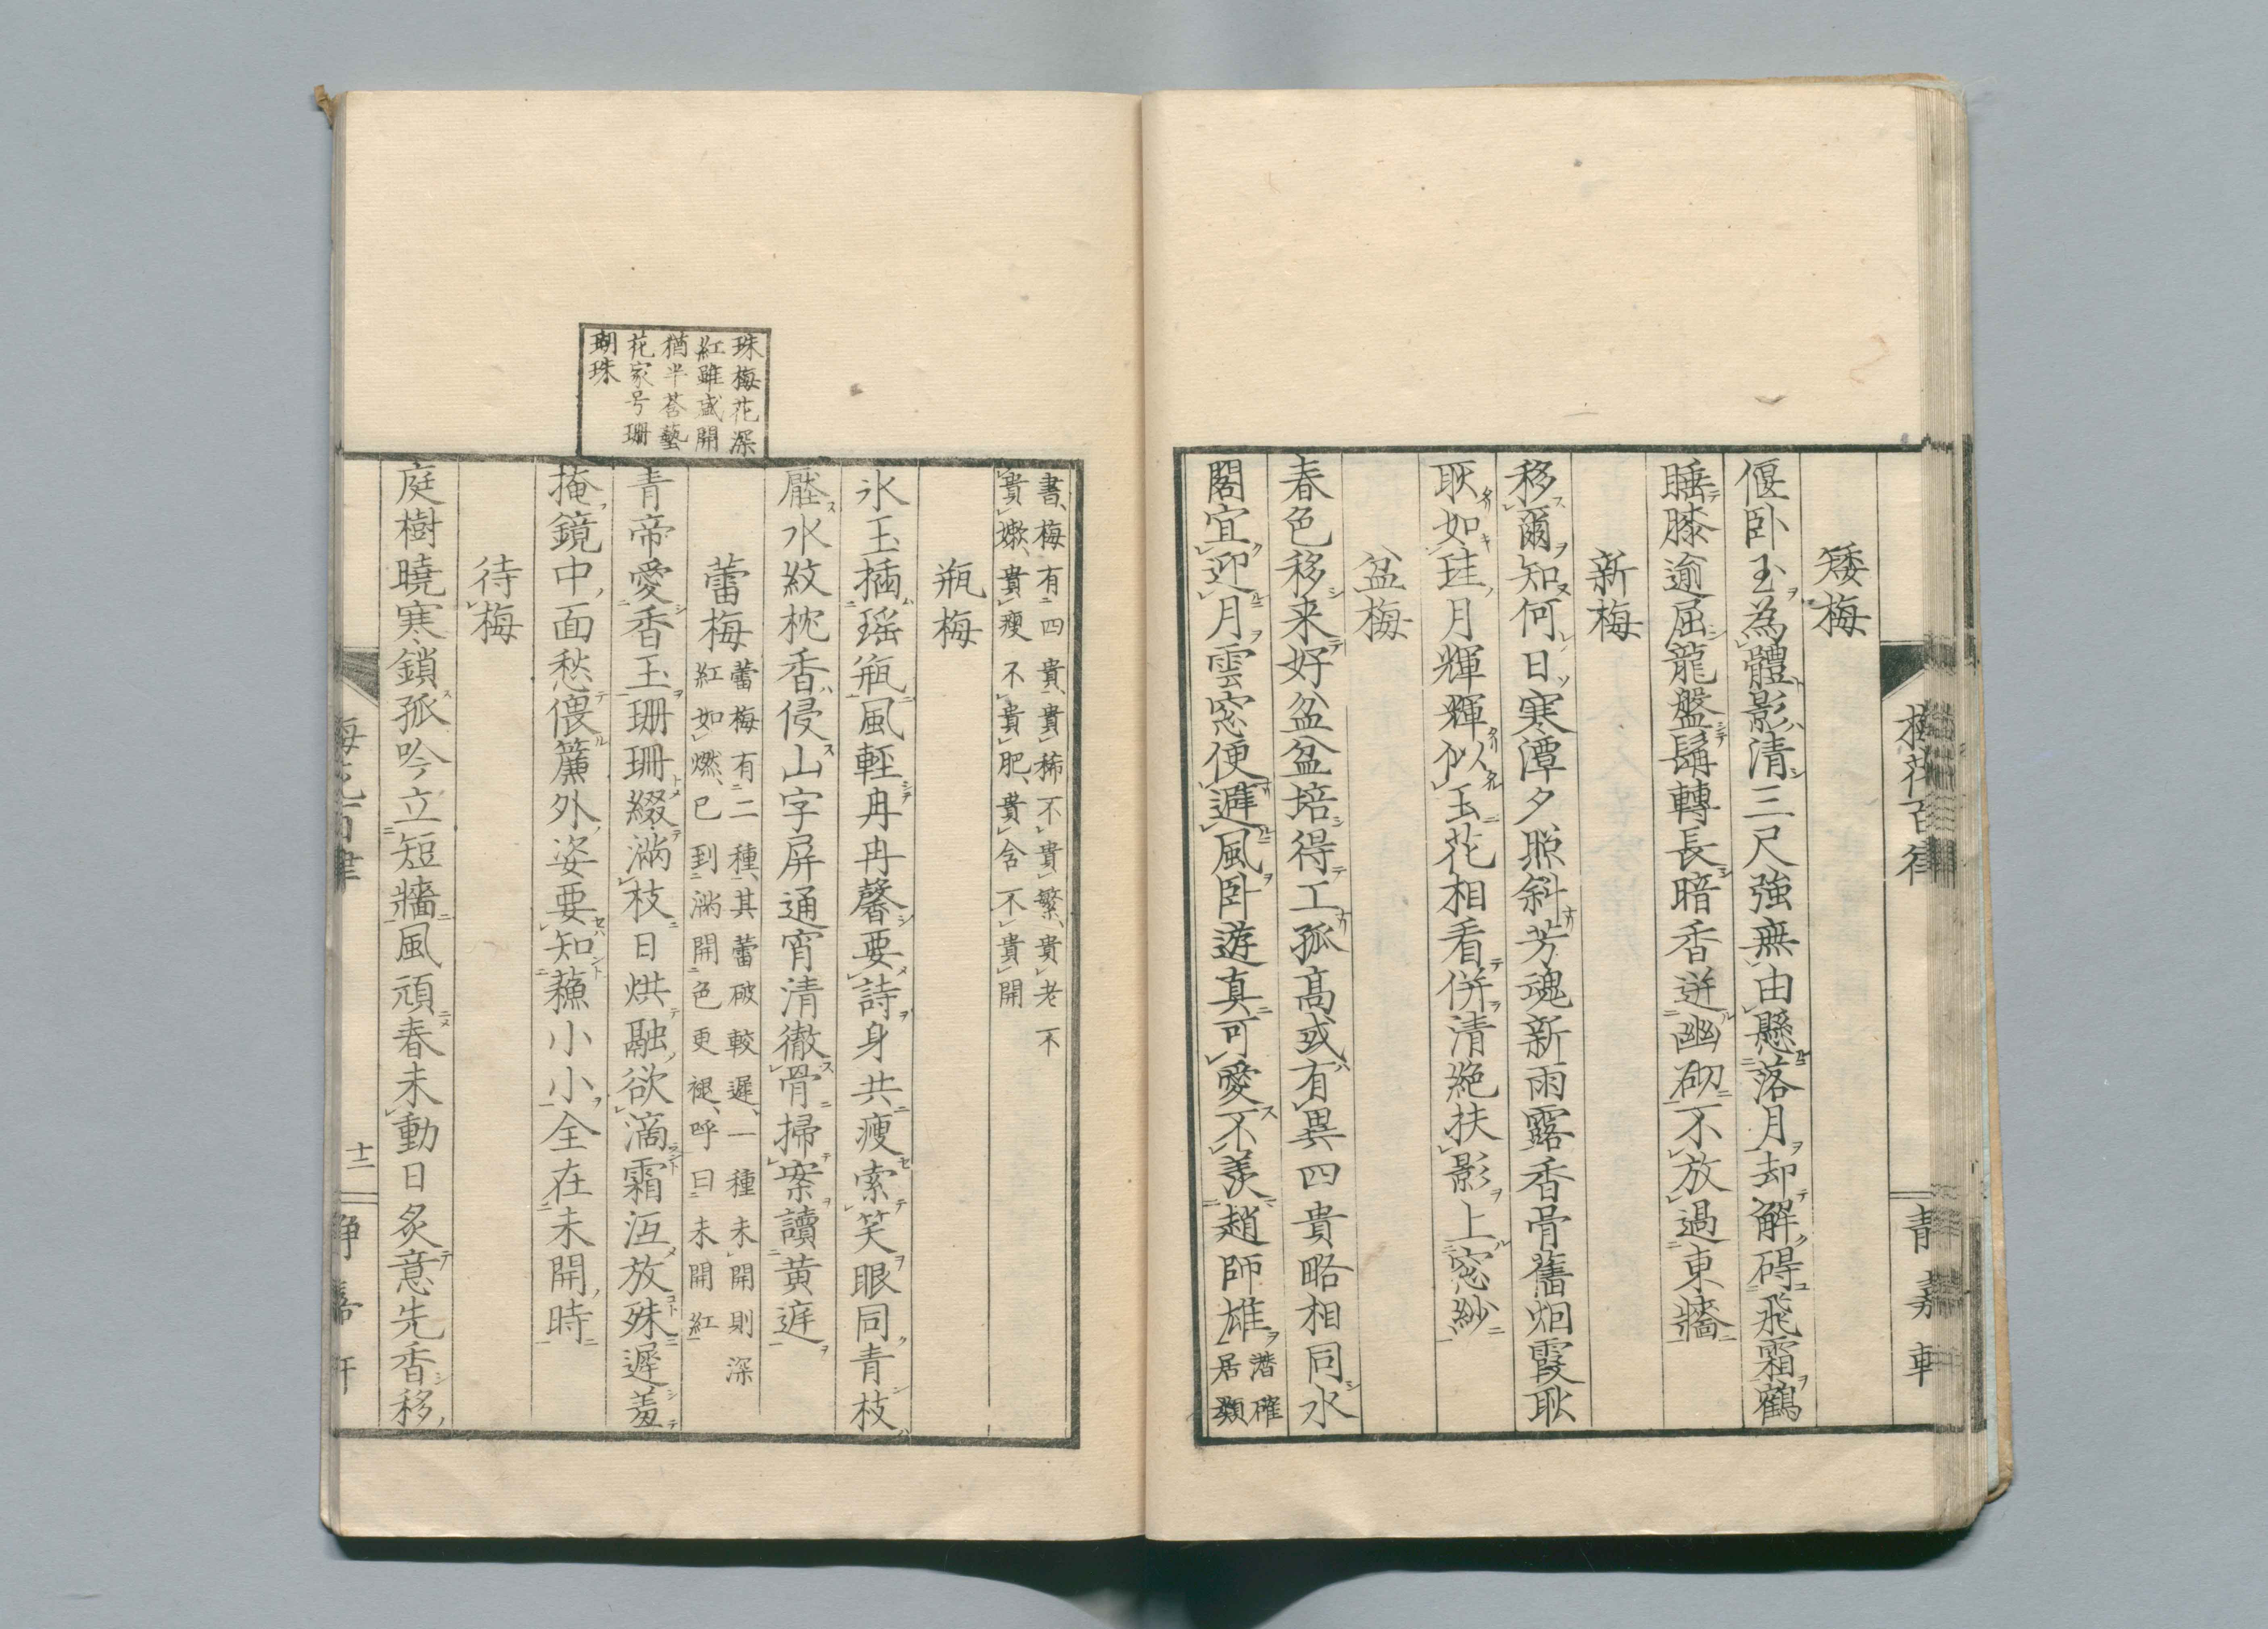 梅花百律
青嘉軒
矮梅
偃卧玉為體影清三尺強無由懸落月却解碍飛霜鶴
睡膝逾屈龍盤鬚轉長暗香迸幽砌不放過東牆
新梅
移爾知何日寒潭夕照斜芳魂新雨露香骨舊烟霞耿
耿如珪月輝輝似玉花相看併清絶扶影上窓紗
盆梅
春色移来好盆盆培得工孤高或有異四貴略相同水
閣宜迎月雲窓便避風卧遊真可愛不羨趙師雄 潜確
居類
書、梅有四貴、貴稀不貴繁、貴老不
貴嫩、貴瘦不貴肥、貴含不貴開
瓶梅
氷玉插瑶瓶風軽冉冉馨要詩身共痩索笑眼同青枝
壓水紋枕香侵山字屏通宵清徹骨掃案讀黄庭
珠梅花深
紅雖盛開
猶半萼藝
花家号珊
瑚珠
蕾梅 蕾梅有二種、其蕾破較遲、一種未開則深
紅如燃、已到満開色更褪、呼曰未開紅
青帝愛香玉珊珊綴満枝日烘融欲滴霜沍放殊遲羞
掩鏡中面愁偎簾外姿要知蘓小小全在未開時
待梅
庭樹曉寒鎖孤吟立短牆風頑春未動日炙意先香移
十二